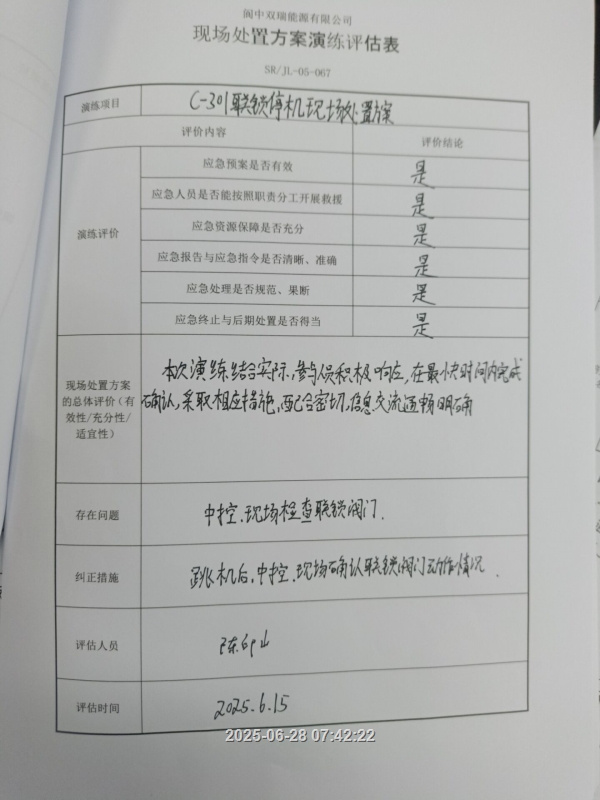 阆中双瑞能源有限公司
现场处置方案演练评估表
SR/JL-05-067
演练项目 C-301联锁停机现场处置方案
评价内容 评价结论
演练评价
应急预案是否有效 是
应急人员是否能按照职责分工开展救援 是
应急资源保障是否充分 是
应急报告与应急指令是否清晰、准确 是
应急处理是否规范、果断 是
应急终止与后期处置是否得当 是
现场处置方案
的总体评价（有
效性/充分性/
适宜性）
本次演练结合实际,参与人员积极响应,在最快时间内完成
确认,采取相应措施,配合密切,信息交流通畅明确
存在问题 中控、现场检查联锁阀门.
纠正措施 跳机后,中控、现场确认联锁阀门动作情况.
评估人员 陈
评估时间 2025.6.15
2025-06-28 07:42:22